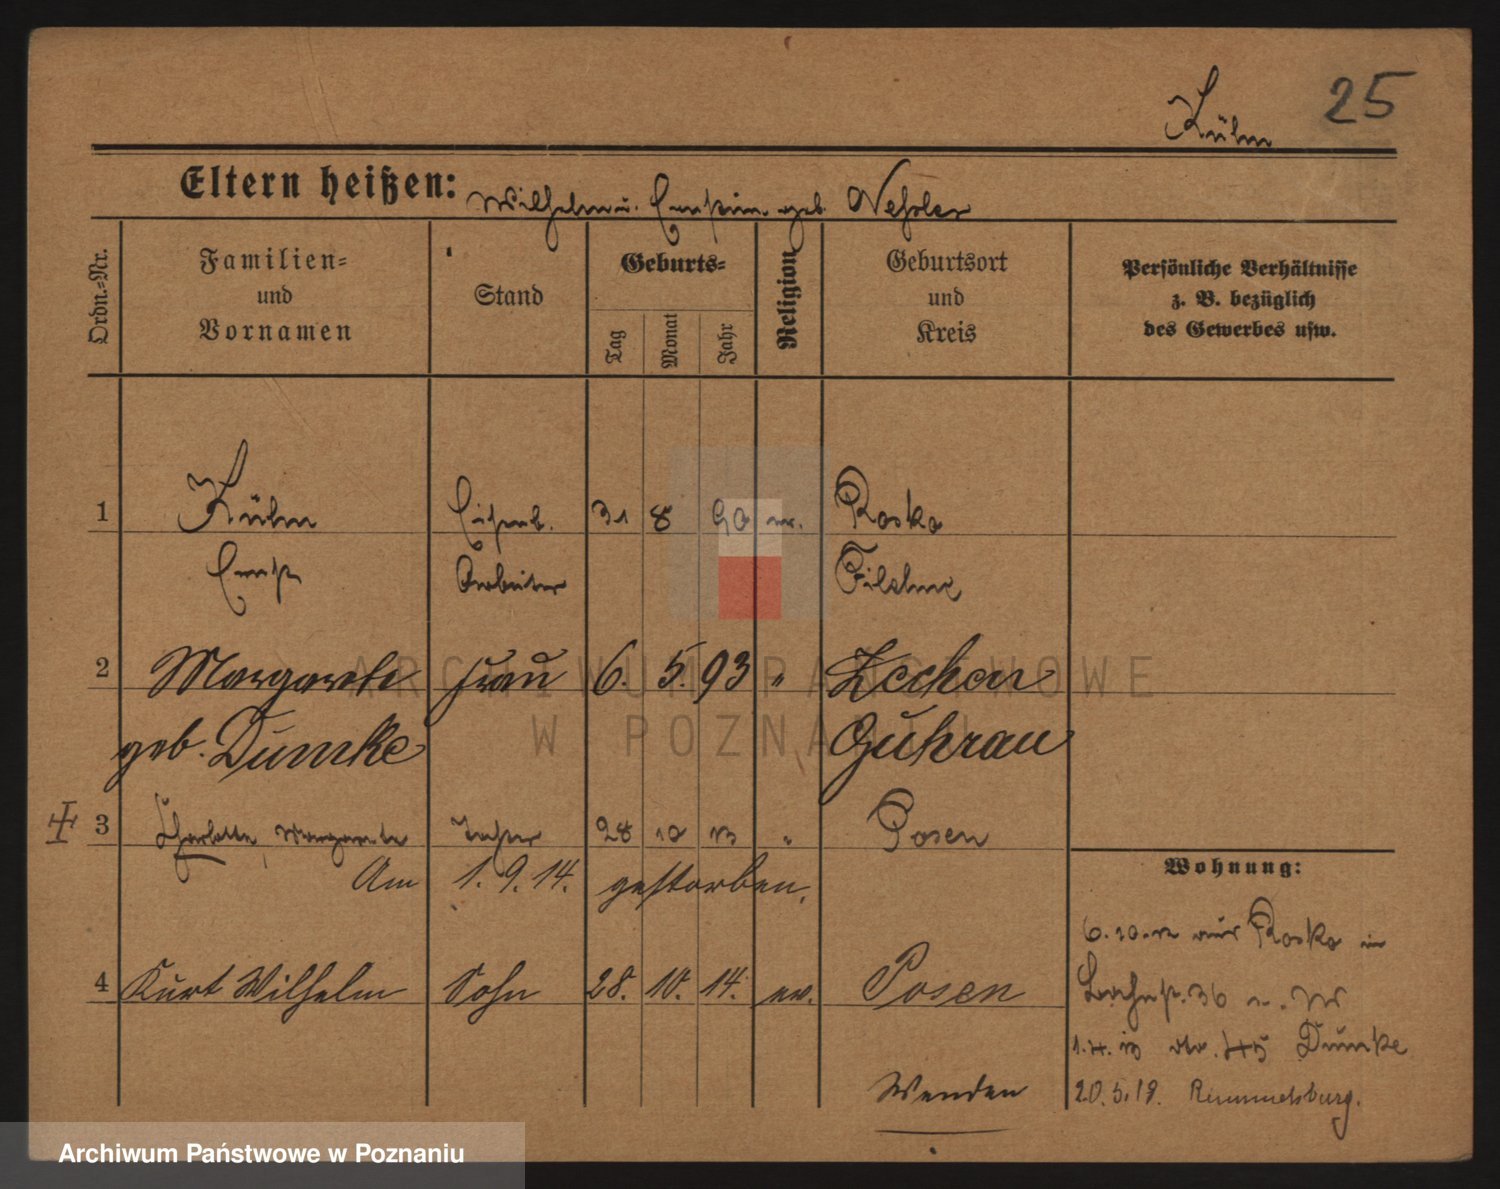 25
Kühn
Eltern heißen: Wilhelm u. Ernstine geb. Nessler
Ordn.-Nr.
Familien- und Vornamen
Stand
Geburts-
Tag
Monat
Jahr
Religion
Geburtsort und Kreis
Persönliche Verhältnisse z. B. bezüglich des Gewerbes usw.
1 Kühn Eisenb. 31 8 90 ev. Rosko
Ernst Arbeiter Filehne
2 Margarete Frau 6. 5. 93 " Zechen
geb. Dumke Guhrau
3 Charlotte, Margarete Tochter 28 10 13 " Posen
Am 1. 9. 14. gestorben.
4 Kurt Wilhelm Sohn 28. 10. 14. ev. Posen
Wenden
Wohnung:
6. 10. 12 aus Rosko in
36
1. 4. 13 45 Dumke
20. 5. 19. Rummelsburg.
ARCHIWUM PAŃSTWOWE
W POZNANIU
Archiwum Państwowe w Poznaniu